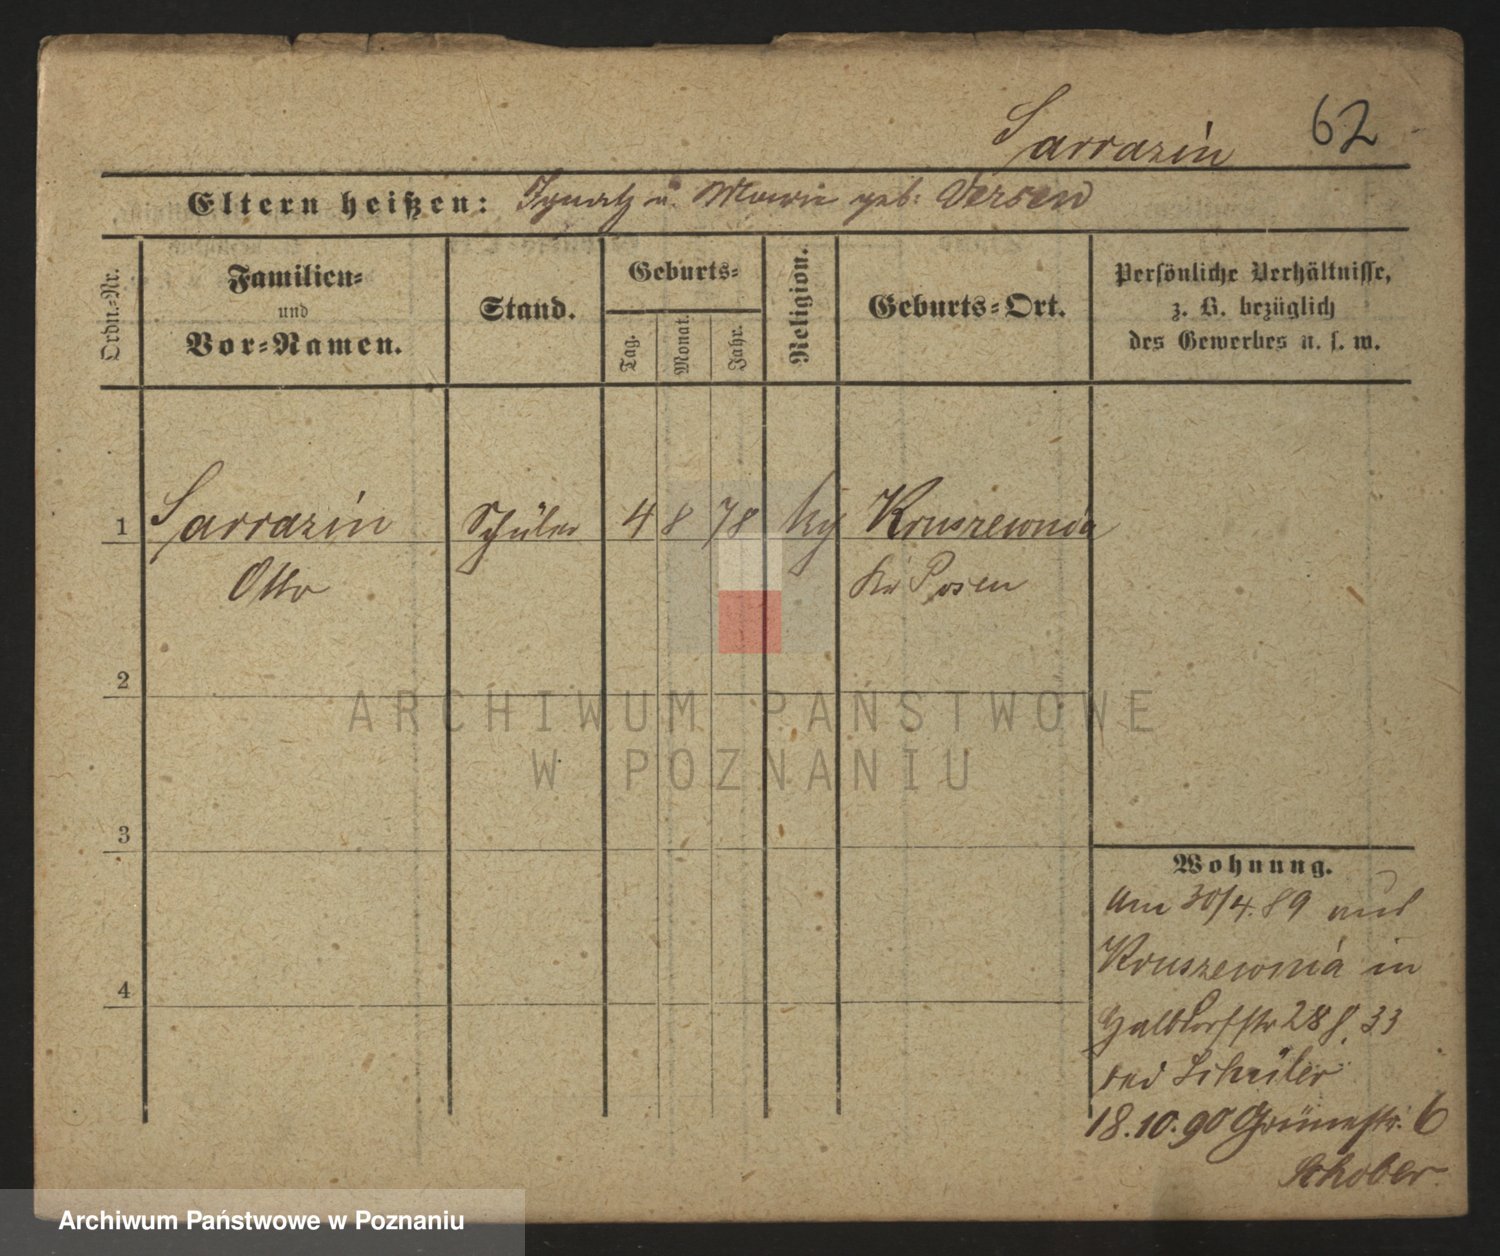 Sarrazin 62
Eltern heißen: Ignatz u. Marie geb. Versen
Ordn.-Nr.
Familien-
und
Vor-Namen.
Stand.
Geburts-
Tag.
Monat.
Jahr.
Religion.
Geburts-Ort.
Persönliche Verhältnisse,
z. B. bezüglich
des Gewerbes u. s. w.
1 Sarrazin Schüler 4 8 78 Kruszewnia
Otto Kr Posen
2
3
4
Wohnung.
Am 30/4. 89 aus
Kruszewnia in
Halbdorfstr 28 33
bei Schüler
18.10.90 Grünestr. 6
Schober
ARCHIWUM PAŃSTWOWE
W POZNANIU
Archiwum Państwowe w Poznaniu